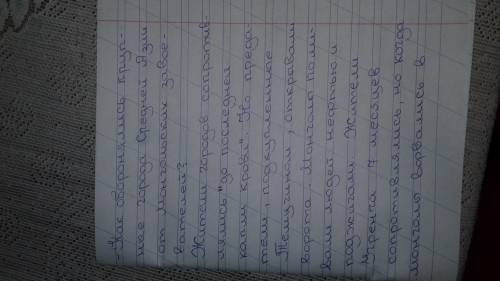 - Как оборонялись круп-
ные города Средней Азии
от монгольских завое-
вателей?
Жители городов сопротив-
лялись "до последней
капли крови". Но преда-
тели, подкупленные
Темучином, открывали
ворота. Монголы поли-
вали людей нефтью и
поджигали. Жители
Угренча 7 месяцев
сопротивлялись, но когда
монголы ворвались в